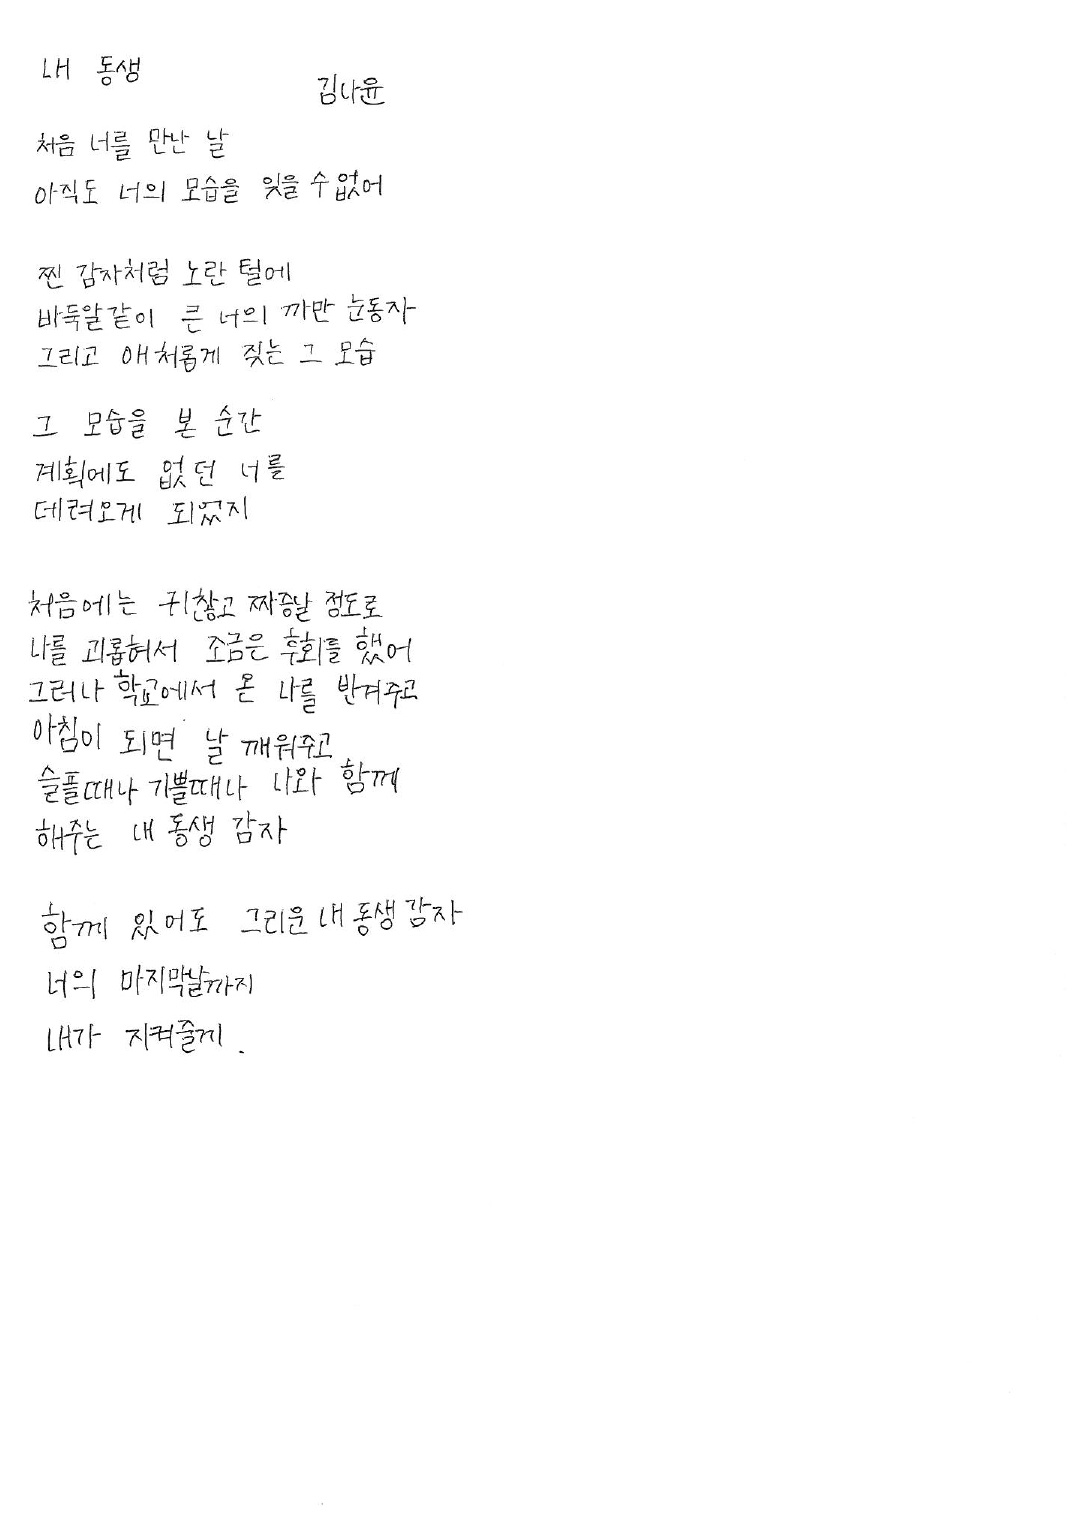 내 동생
김나윤
처음 너를 만난 날
아직도 너의 모습을 잊을 수 없어
찐 감자처럼 노란 털에
바둑알같이 큰 너의 까만 눈동자
그리고 애처롭게 짖는 그 모습
그 모습을 본 순간
계획에도 없던 너를
데려오게 되었지
처음에는 귀찮고 짜증날 정도로
나를 괴롭혀서 조금은 후회를 했어
그러나 학교에서 온 나를 반겨주고
아침이 되면 날 깨워주고
슬플때나 기쁠때나 나와 함께
해주는 내 동생 감자
함께 있어도 그리운 내 동생 감자
너의 마지막날까지
내가 지켜줄게.